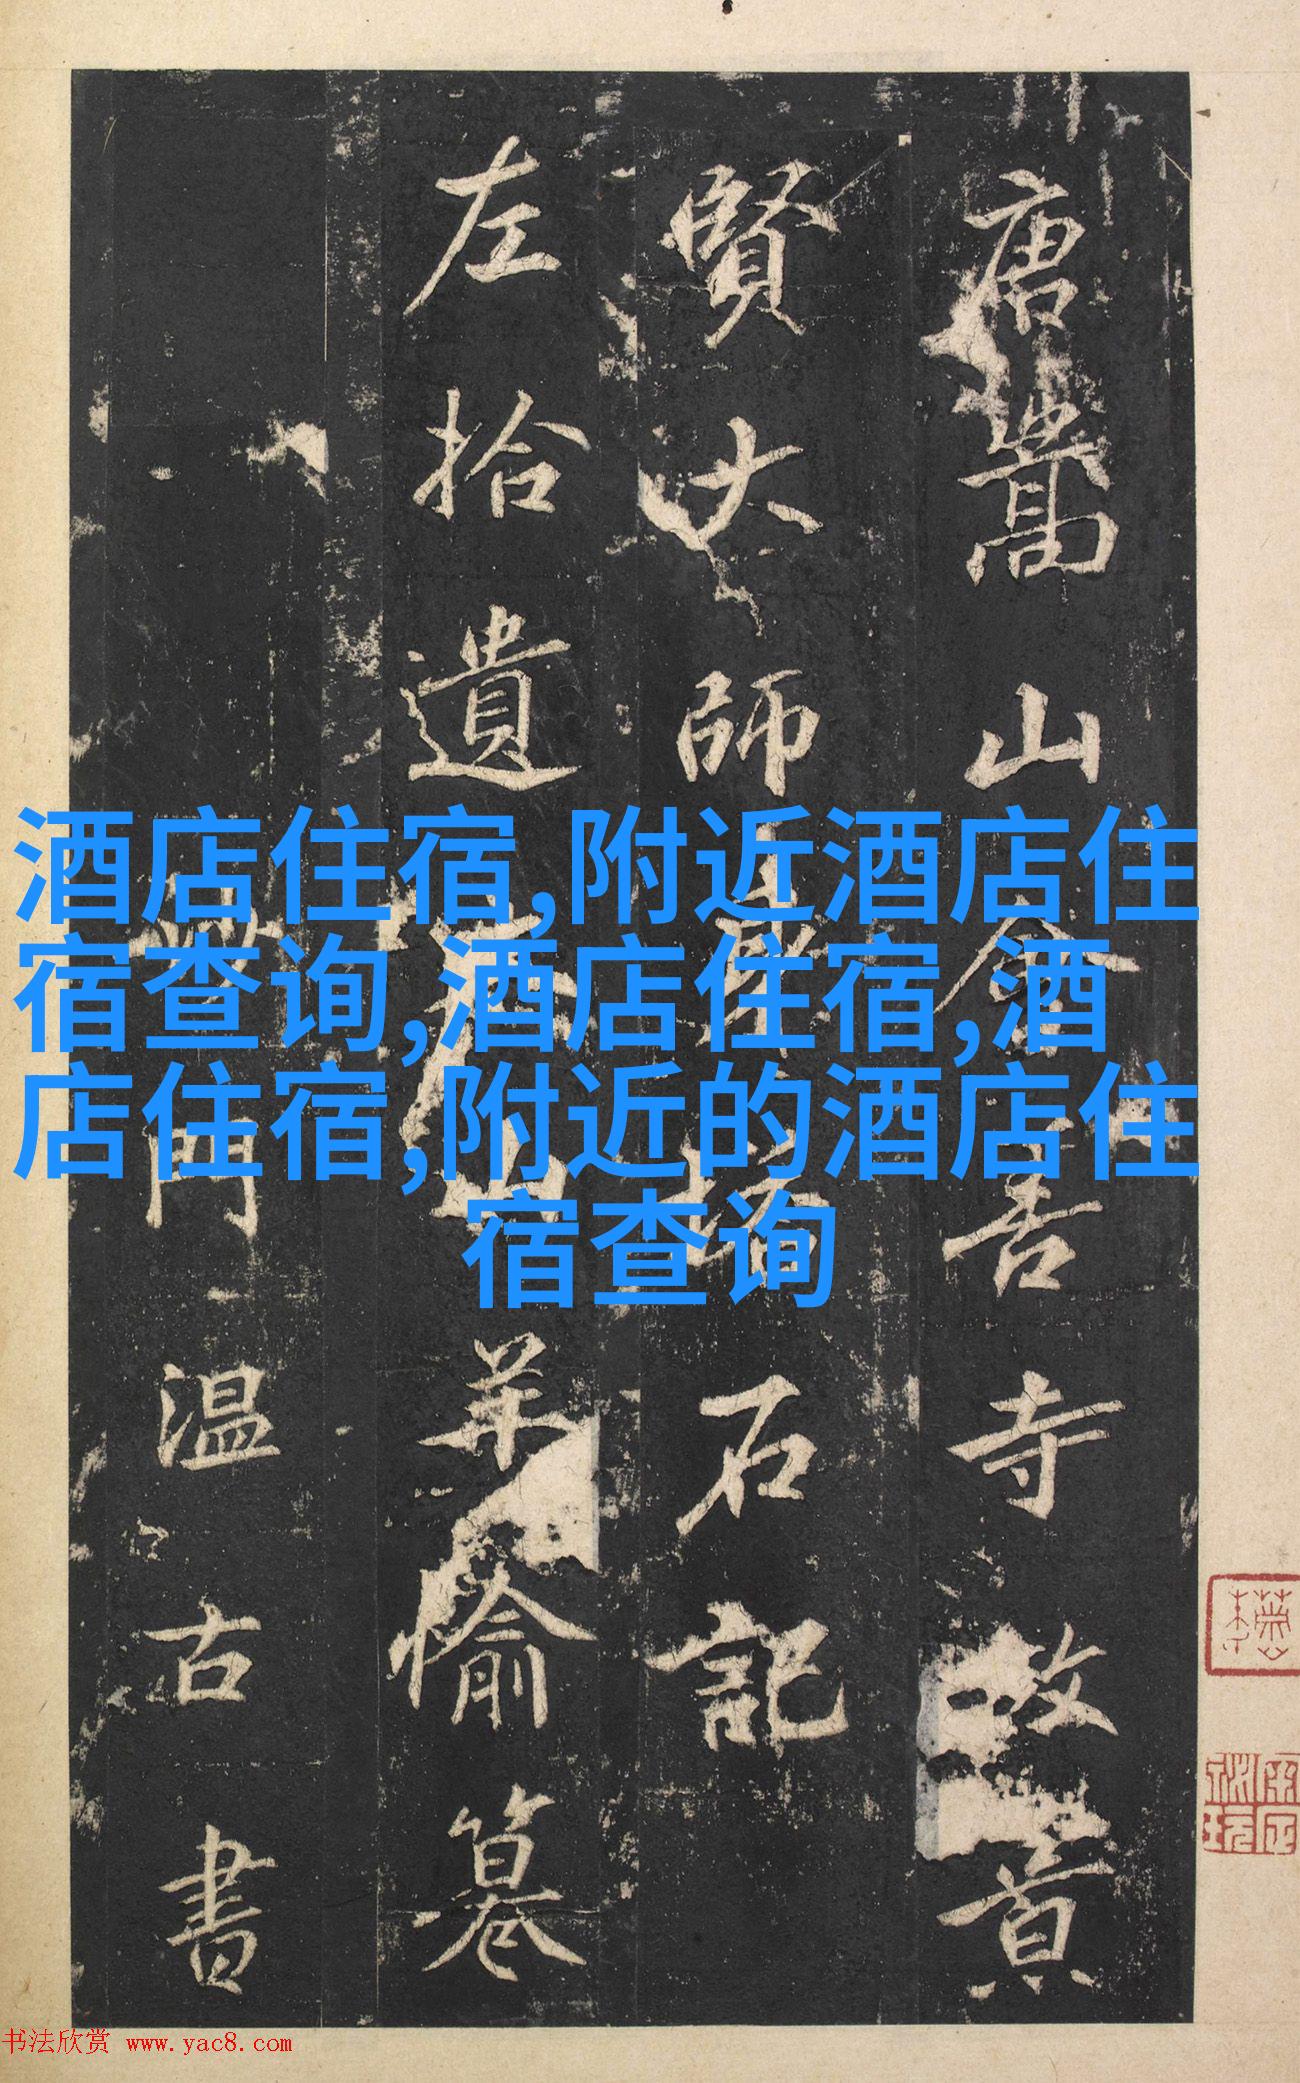 唐嵩山會善寺故景
賢大師身塔石記
左拾遺山羊愉篹
沙門溫古書
酒店住宿,附近酒店住
宿查询,酒店住宿,酒
店住宿,附近的酒店住
宿查询
书法欣赏 www.yac8.com